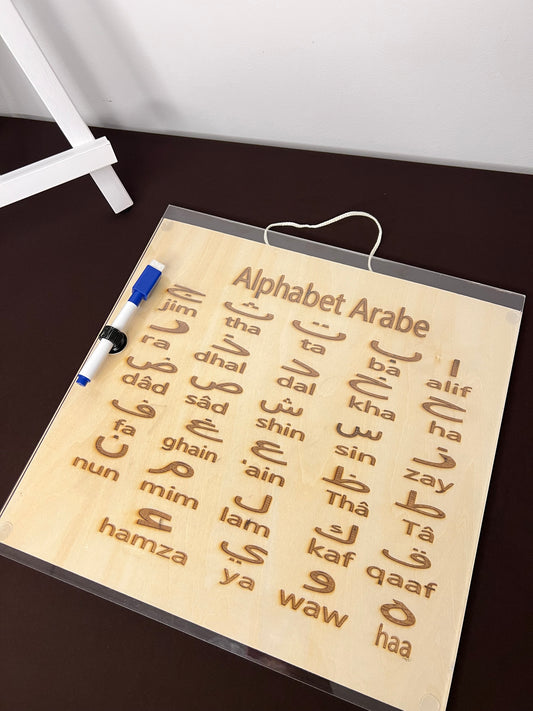 Alphabet Arabe
ا ب ت ث ج
alif ba ta tha jim
ح خ د ذ ر
ha kha dal dhal ra
ز س ش ص ض
zay sin shin sâd dâd
ط ظ ع غ ف
Tâ Thâ 'ain ghain fa
ق ك ل م ن
qaaf kaf lam mim nun
ه و ي ء
haa waw ya hamza